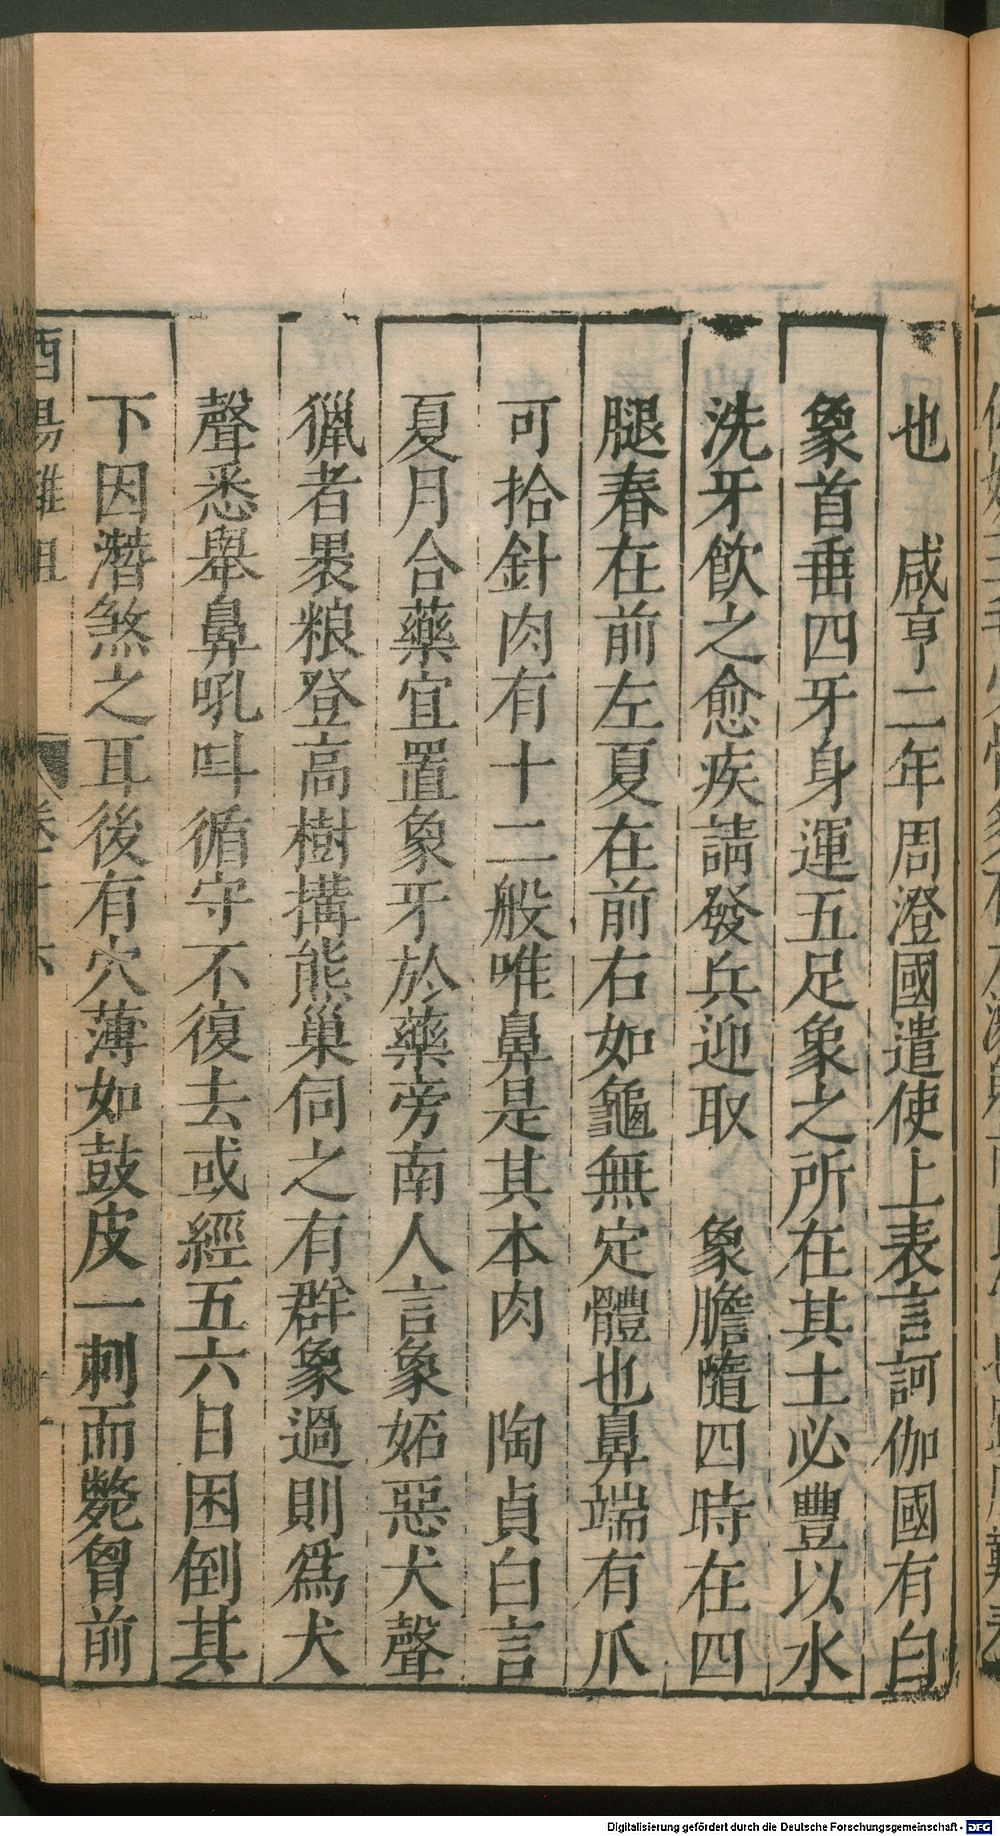 也　咸亨二年周澄國遣使上表言訶伽國有白
象首垂四牙身運五足象之所在其土必豐以水
洗牙飲之愈疾請發兵迎取　象膽隨四時在四
腿春在前左夏在前右如龜無定體也鼻端有爪
可拾針肉有十二般唯鼻是其本肉　陶貞白言
夏月合藥宜置象牙於藥旁南人言象妬惡犬聲
獵者褁粮登高樹搆熊巢伺之有群象過則爲犬
聲悉舉鼻吼呌循守不復去或經五六日困倒其
下因潛煞之耳後有穴薄如鼓皮一刺而斃曾前
酉陽雜俎
Digitalisierung gefördert durch die Deutsche Forschungsgemeinschaft - DFG